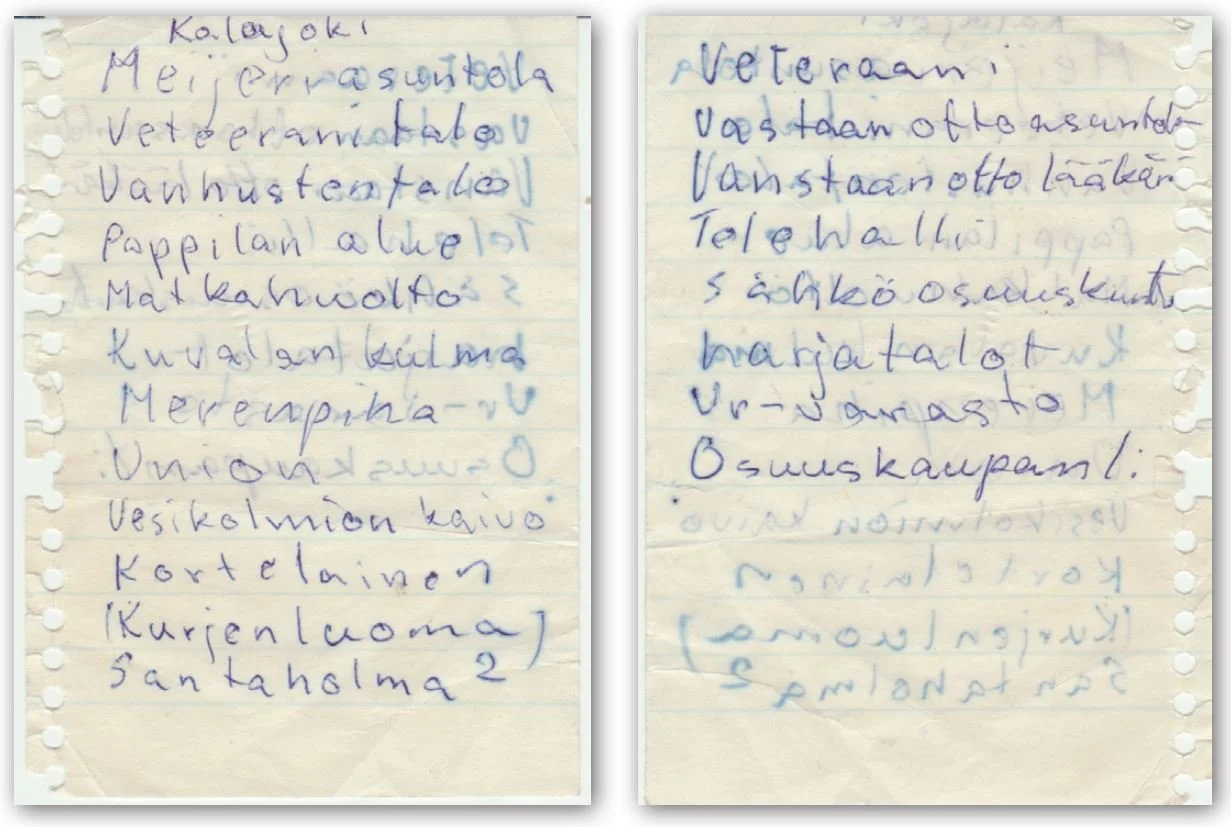 Kalajoki
Meijeriasuntola
Vetoeranitalo
Vanhustentalo
Pappilan alue
Matkahuolto
Kuvalan kulma
Merenpiha
Union
Vesikolmion kaivo
Kortelainen
(Kurjenluoma)
Santaholma 2
Veteraani
Vastaanottoasuntola
Vanstaanotto lääkäri
Telehalli
Sähköosuuskunta
harjatalot
Vr-varasto
Osuuskaupanl.